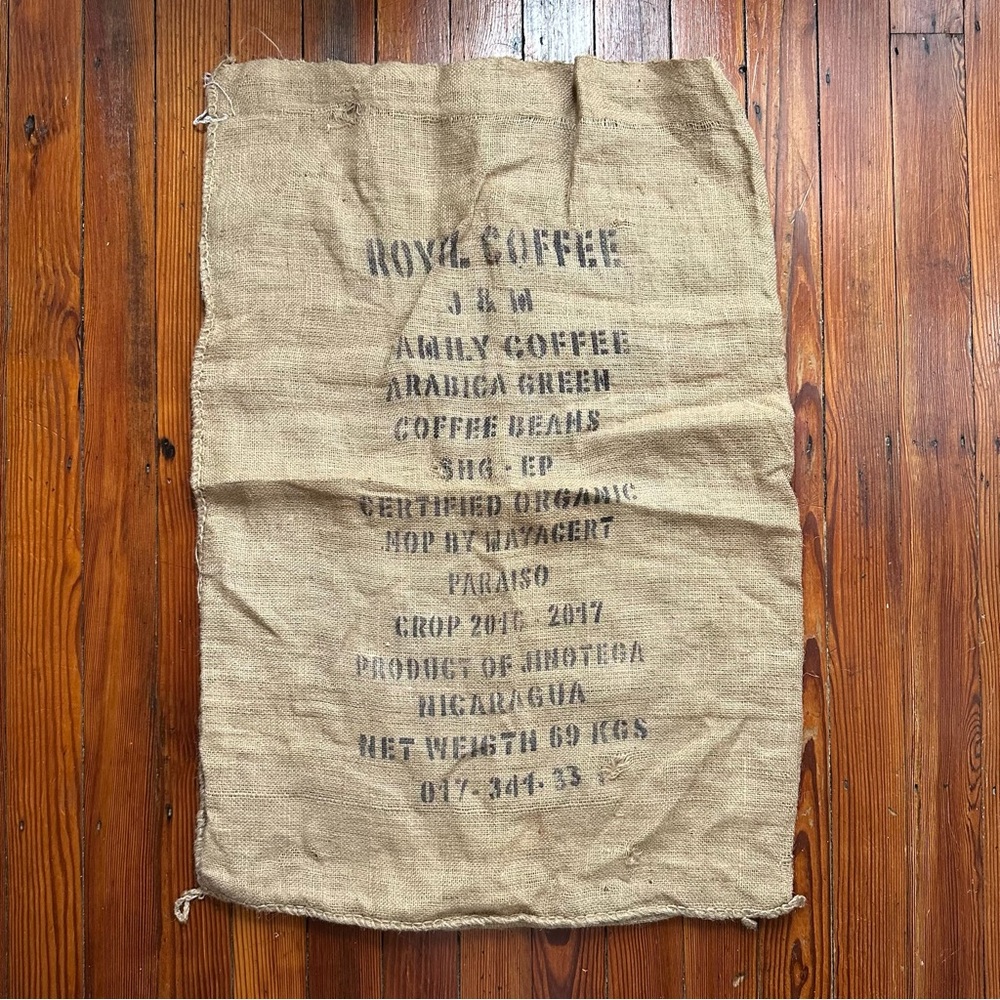 ROYAL COFFEE
J & M
FAMILY COFFEE
ARABICA GREEN
COFFEE BEANS
SHG - EP
CERTIFIED ORGANIC
NOP BY MAYACERT
PARAISO
CROP 2016 - 2017
PRODUCT OF JINOTEGA
NICARAGUA
NET WEIGTH 69 KGS
017-344-33